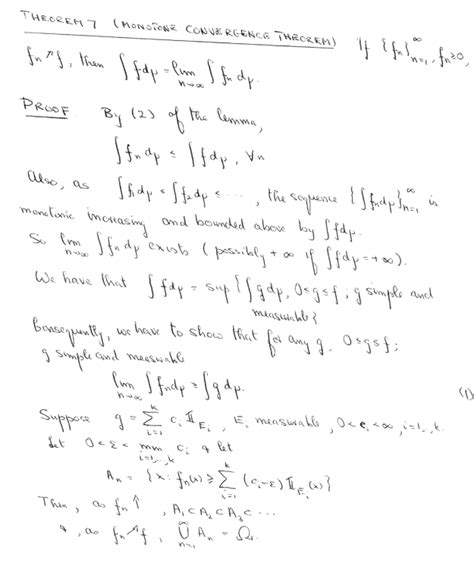 THEOREM 7 (MONOTONE CONVERGENCE THEOREM) If {fₙ}ₙ₌₁^∞, fₙ≥0,
fₙ ↗ f, then ∫ f dμ = lim_{n→∞} ∫ fₙ dμ.
PROOF By (2) of the lemma,
∫ fₙ dμ ≤ ∫ f dμ, ∀n
Also, as ∫ f₁ dμ ≤ ∫ f₂ dμ ≤ ⋯, the sequence {∫ fₙ dμ}ₙ₌₁^∞ is
monotonic increasing and bounded above by ∫ f dμ.
So lim_{n→∞} ∫ fₙ dμ exists (possibly +∞ if ∫ f dμ = +∞).
We have that ∫ f dμ = sup {∫ g dμ, 0≤g≤f; g simple and
measurable}
Consequently, we have to show that for any g, 0≤g≤f;
g simple and measurable
lim_{n→∞} ∫ fₙ dμ ≥ ∫ g dμ. (1)
Suppose g = ∑_{i=1}^k cᵢ 𝟙_{Eᵢ}, Eᵢ measurable, 0<cᵢ<∞, i=1,..,k.
Let 0<ε< min_{i=1,..,k} cᵢ & let
Aₙ = {x: fₙ(x) ≥ ∑_{i=1}^k (cᵢ-ε) 𝟙_{Eᵢ}(x)}
Then, as fₙ ↑, A₁⊂A₂⊂A₃⊂⋯
&, as fₙ ↗ f, ⋃_{n=1}^∞ Aₙ = Ω.